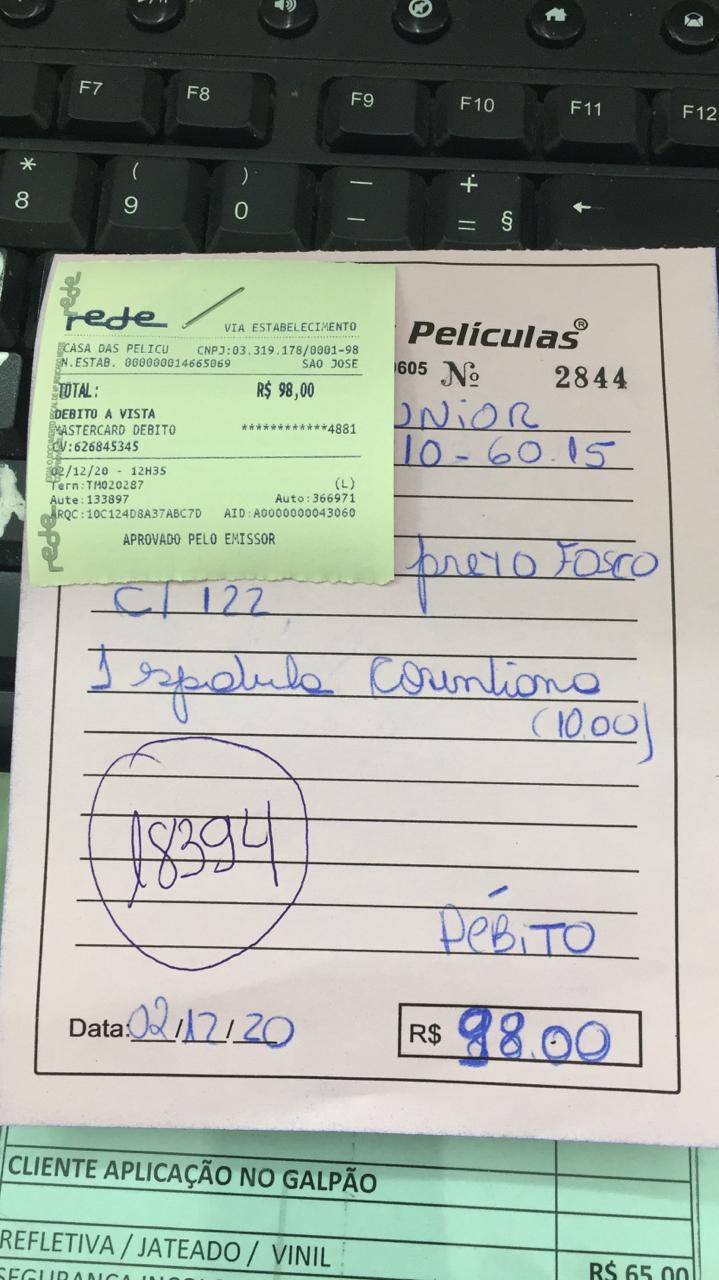 F7 F8 F9 F10 F11 F12
* ( ) — +
8 9 0 — = § ←
rede
VIA ESTABELECIMENTO
CASA DAS PELICU CNPJ:03.319.178/0001-98
N.ESTAB. 000000014665069 SAO JOSE
TOTAL: R$ 98,00
DEBITO A VISTA
MASTERCARD DEBITO ************4881
CV:626845345
02/12/20 - 12H35
Term:TM020287 (L)
Aute:133897 Auto:366971
ARQC:10C124D8A37ABC7D AID:A0000000043060
APROVADO PELO EMISSOR
rede
rede
Películas®
0605 Nº 2844
UNIOR
10-60.15
preto Fosco
C/ 122
1 espatula Corintiana
(10.00)
18394
DÉBITO
Data: 02/12/20 R$ 98.00
CLIENTE APLICAÇÃO NO GALPÃO
REFLETIVA / JATEADO / VINIL
R$ 65,00